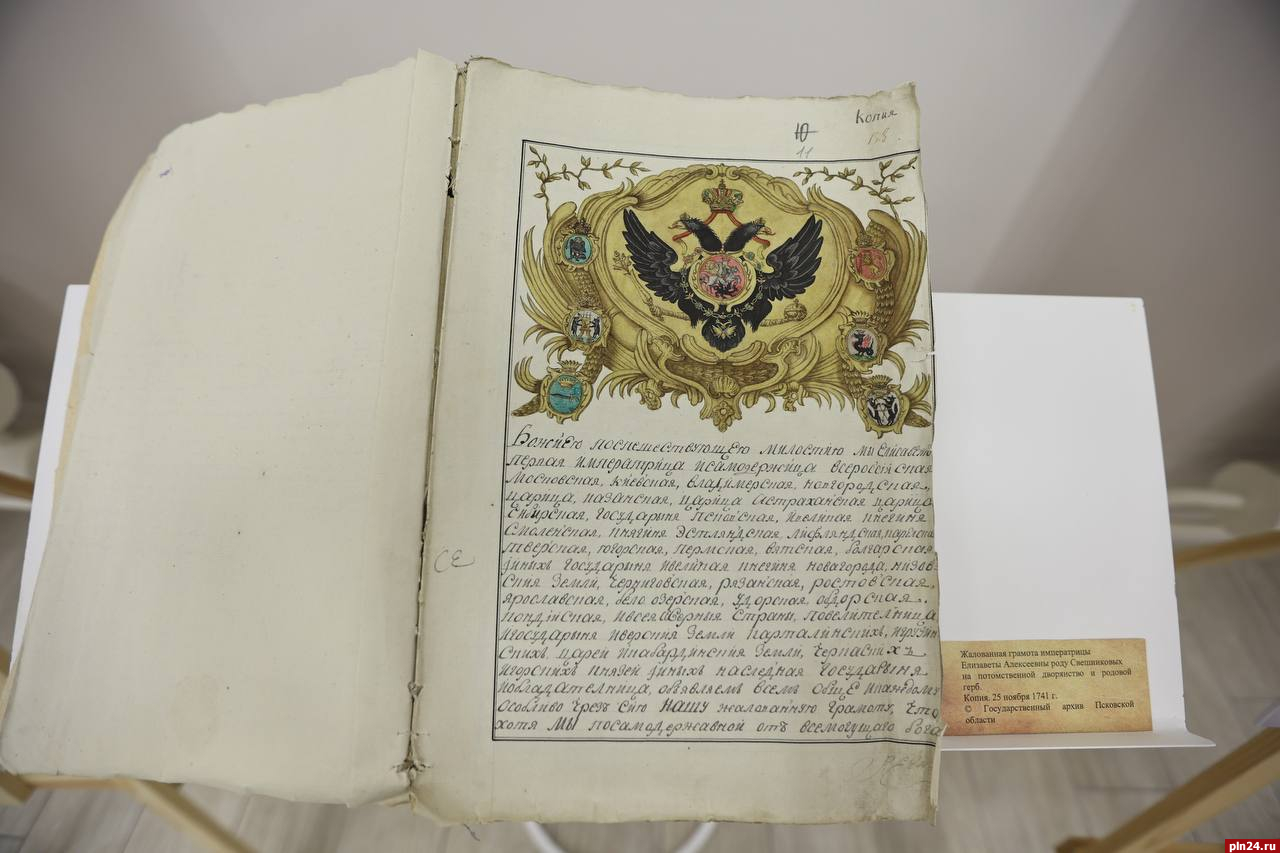 Копия
10
11
Божиею поспешествующею милостию мы Елисаветъ
первая императрица исамодержица всеросийская
Московская, киевская, владимерская, новгородская,
царица, казанская, царица Астраханская царица
Сибирская, государыня Псковская, ивеликая княгиня
Смоленская, княгиня Эстляндская, лифляндская, карельская
тверская, югорская, пермская, вятская, болгарская
иныхъ государыня ивеликая княгиня новагорода, низов
ския земли, Черниговская, рязанская, ростовская
ярославская, бело озерская, удорская, обдорская,
кондийская, ивсея северныя страны, повелительница
игосударыня иверския земли карталинскихъ, игрузин
скихъ, царей икабардинския земли, черкаскихъ
игорскихъ князей иныхъ наследная государыня
иобладательница, объявляемъ всемъ обще икаждому
особливо чрезъ сию нашу жалованную грамоту, что
хотя мы посамодержавной отъ всемогущаго бога
СЕ
Жалованная грамота императрицы
Елизаветы Алексеевны роду Свешниковых
на потомственной дворянство и родовой
герб.
Копия. 25 ноября 1741 г.
© Государственный архив Псковской
области
pln24.ru